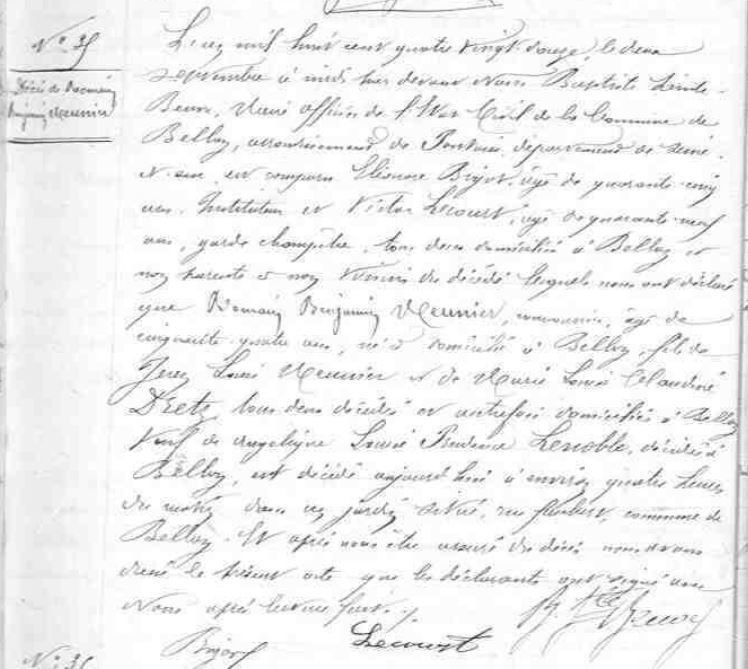 N° 35
Décès de Romain
Benjamin Meunier
L'an mil huit cent quatre vingt douze, le deux
Septembre à midi par devant Nous Baptiste
Maire Officier de l'État Civil de la Commune de
Belloy, arrondissement de Pontoise département de Seine
et Oise, ont comparu Bigot, âgé de quarante cinq
ans, Instituteur et Victor Lecourt, âgé de quarante neuf
ans, garde champêtre, tous deux domiciliés à Belloy et
non parents et non voisins du décédé lesquels nous ont déclaré
que Romain Benjamin Meunier, âgé de
cinquante quatre ans, né et domicilié à Belloy, fils de
Jean Louis Meunier et de Marie Louise Claudine
Dietz, tous deux décédés et autrefois domiciliés à Belloy
Veuf de Angélique Louise Prudence Lenoble, décédée à
Belloy, est décédé aujourd'hui à environ quatre heures
du matin dans un jardin situé, rue commune de
Belloy. Et après nous être assuré du décès nous avons
dressé le présent acte que les déclarants ont signé avec
Nous après lecture faite.
Bigot Lecourt